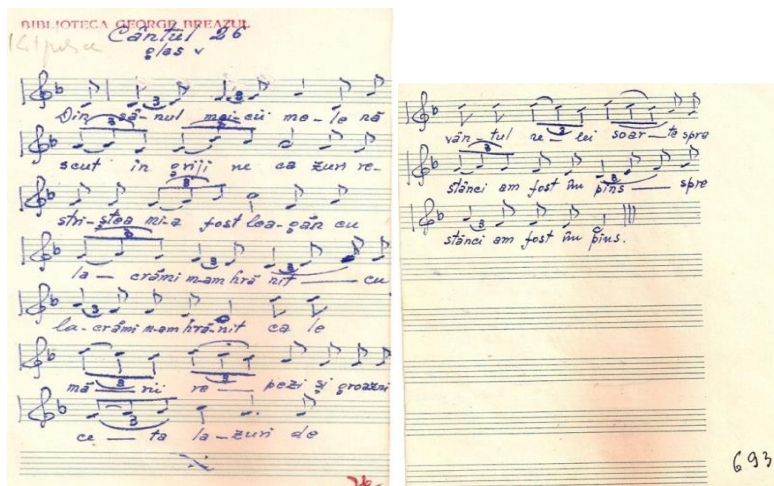 BIBLIOTECA GEORGE BREAZUL
Cântul 26
glas v
Din sâ-nul mai-cii me-le nă
scut in griji ne ca zuri re-
stri-ştea mi-a fost lea-găn cu
la — crămi m-am hră nit — cu
la-crămi m-am hră-nit ca le
mă — rii re — pezi şi groazni
ce — ta la-zuri de
vân-tul re-lei soar-te spre
stânci am fost îm pins — spre
stânci am fost îm pins.
693